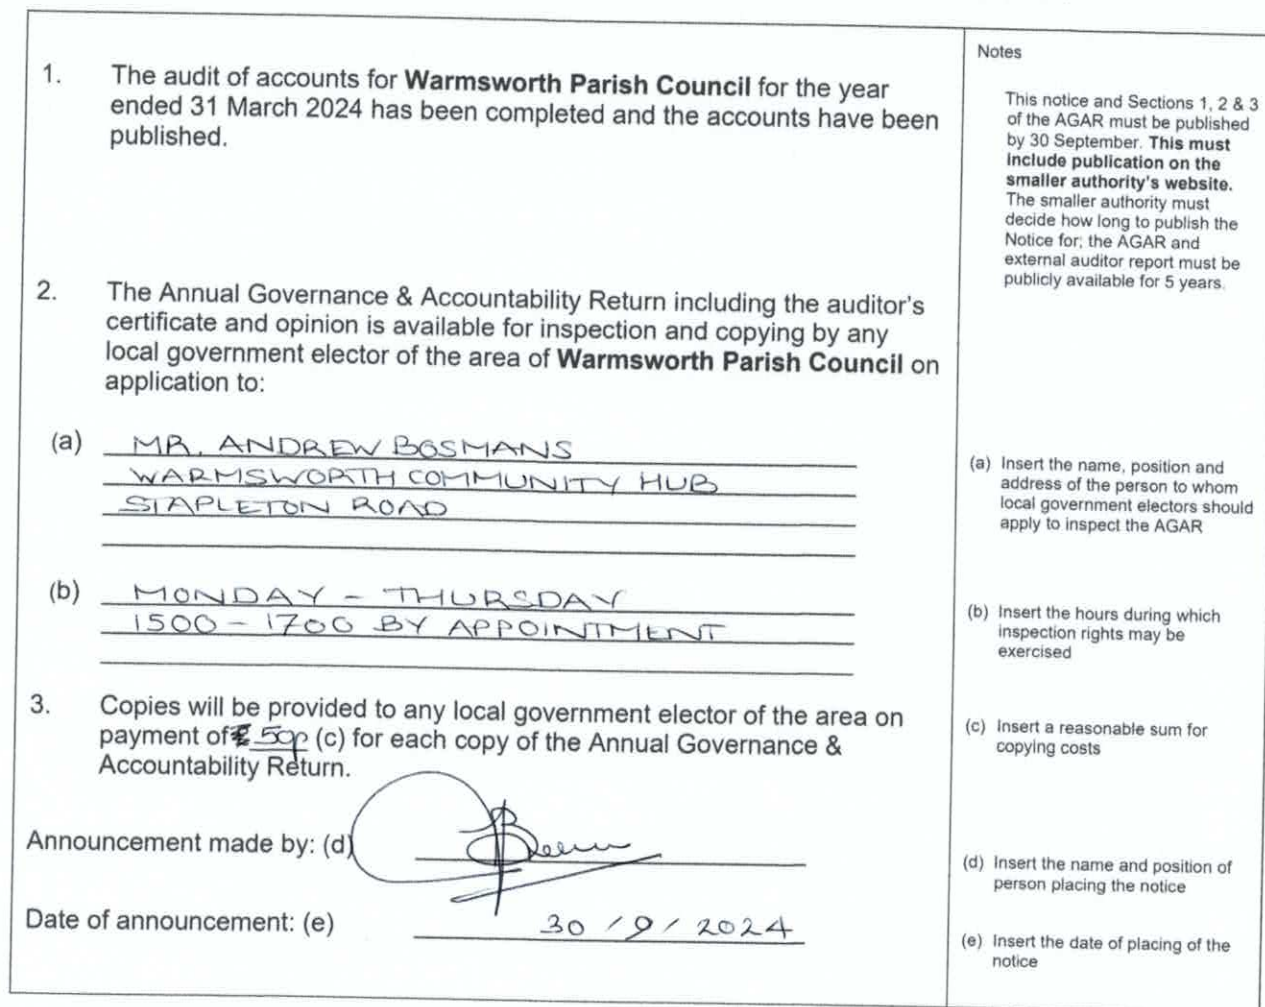 1. The audit of accounts for Warmsworth Parish Council for the year
ended 31 March 2024 has been completed and the accounts have been
published.
2. The Annual Governance & Accountability Return including the auditor's
certificate and opinion is available for inspection and copying by any
local government elector of the area of Warmsworth Parish Council on
application to:
(a) MR. ANDREW BOSMANS
WARMSWORTH COMMUNITY HUB
STAPLETON ROAD
(b) MONDAY - THURSDAY
1500 - 1700 BY APPOINTMENT
3. Copies will be provided to any local government elector of the area on
payment of £ 50p (c) for each copy of the Annual Governance &
Accountability Return.
Announcement made by: (d)
Date of announcement: (e) 30 / 9 / 2024
Notes
This notice and Sections 1, 2 & 3
of the AGAR must be published
by 30 September. This must
include publication on the
smaller authority's website.
The smaller authority must
decide how long to publish the
Notice for; the AGAR and
external auditor report must be
publicly available for 5 years.
(a) Insert the name, position and
address of the person to whom
local government electors should
apply to inspect the AGAR
(b) Insert the hours during which
inspection rights may be
exercised
(c) Insert a reasonable sum for
copying costs
(d) Insert the name and position of
person placing the notice
(e) Insert the date of placing of the
notice